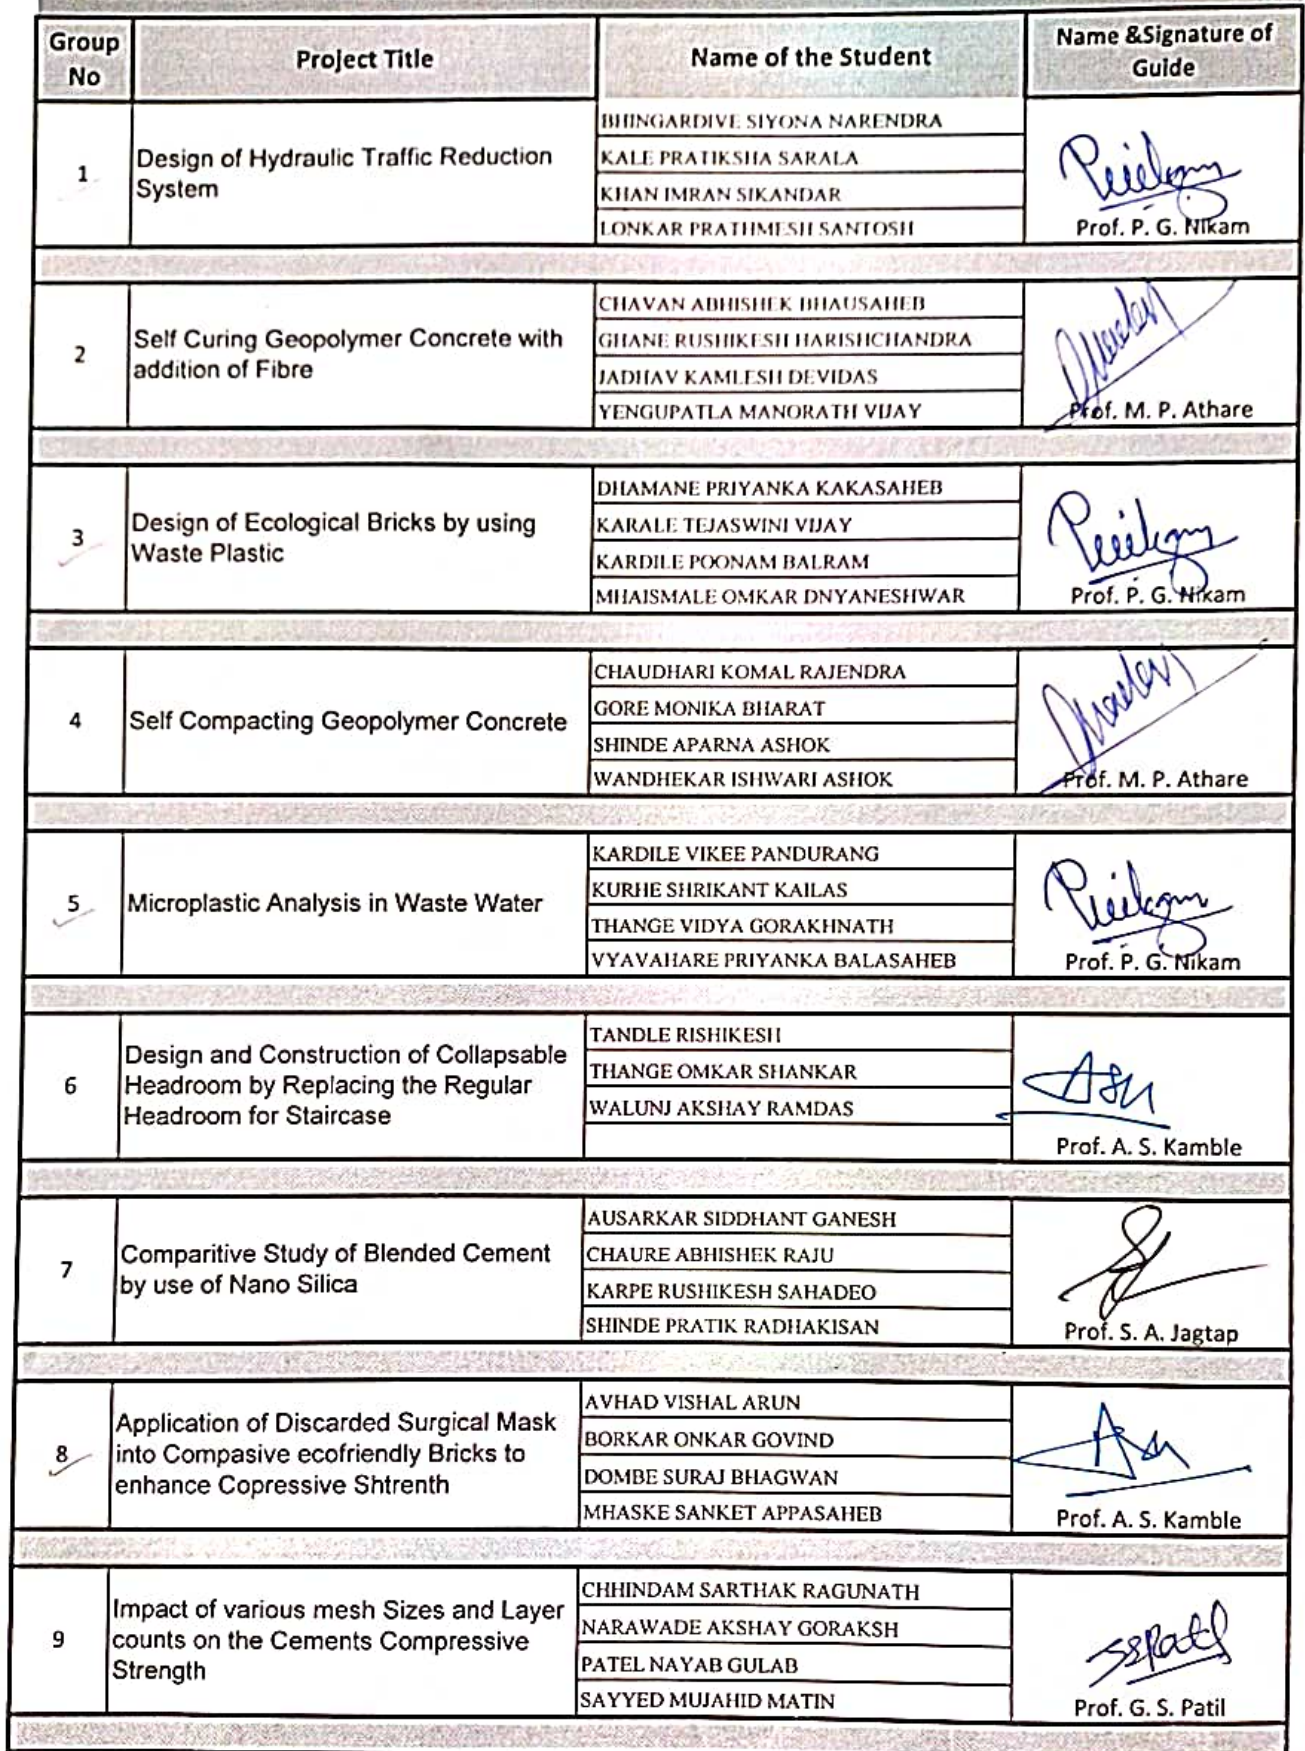 Group No
Project Title
Name of the Student
Name &Signature of Guide
1
Design of Hydraulic Traffic Reduction
System
BHINGARDIVE SIYONA NARENDRA
KALE PRATIKSHA SARALA
KHAN IMRAN SIKANDAR
LONKAR PRATHMESH SANTOSH
Prof. P. G. Nikam
2
Self Curing Geopolymer Concrete with
addition of Fibre
CHAVAN ABHISHEK BHAUSAHEB
GHANE RUSHIKESH HARISHCHANDRA
JADHAV KAMLESH DEVIDAS
YENGUPATLA MANORATH VIJAY
Prof. M. P. Athare
3
Design of Ecological Bricks by using
Waste Plastic
DHAMANE PRIYANKA KAKASAHEB
KARALE TEJASWINI VIJAY
KARDILE POONAM BALRAM
MHAISMALE OMKAR DNYANESHWAR
Prof. P. G. Nikam
4
Self Compacting Geopolymer Concrete
CHAUDHARI KOMAL RAJENDRA
GORE MONIKA BHARAT
SHINDE APARNA ASHOK
WANDHEKAR ISHWARI ASHOK
Prof. M. P. Athare
5
Microplastic Analysis in Waste Water
KARDILE VIKEE PANDURANG
KURHE SHRIKANT KAILAS
THANGE VIDYA GORAKHNATH
VYAVAHARE PRIYANKA BALASAHEB
Prof. P. G. Nikam
6
Design and Construction of Collapsable
Headroom by Replacing the Regular
Headroom for Staircase
TANDLE RISHIKESH
THANGE OMKAR SHANKAR
WALUNJ AKSHAY RAMDAS
Prof. A. S. Kamble
7
Comparitive Study of Blended Cement
by use of Nano Silica
AUSARKAR SIDDHANT GANESH
CHAURE ABHISHEK RAJU
KARPE RUSHIKESH SAHADEO
SHINDE PRATIK RADHAKISAN
Prof. S. A. Jagtap
8
Application of Discarded Surgical Mask
into Compasive ecofriendly Bricks to
enhance Copressive Shtrenth
AVHAD VISHAL ARUN
BORKAR ONKAR GOVIND
DOMBE SURAJ BHAGWAN
MHASKE SANKET APPASAHEB
Prof. A. S. Kamble
9
Impact of various mesh Sizes and Layer
counts on the Cements Compressive
Strength
CHHINDAM SARTHAK RAGUNATH
NARAWADE AKSHAY GORAKSH
PATEL NAYAB GULAB
SAYYED MUJAHID MATIN
SSPatil
Prof. G. S. Patil